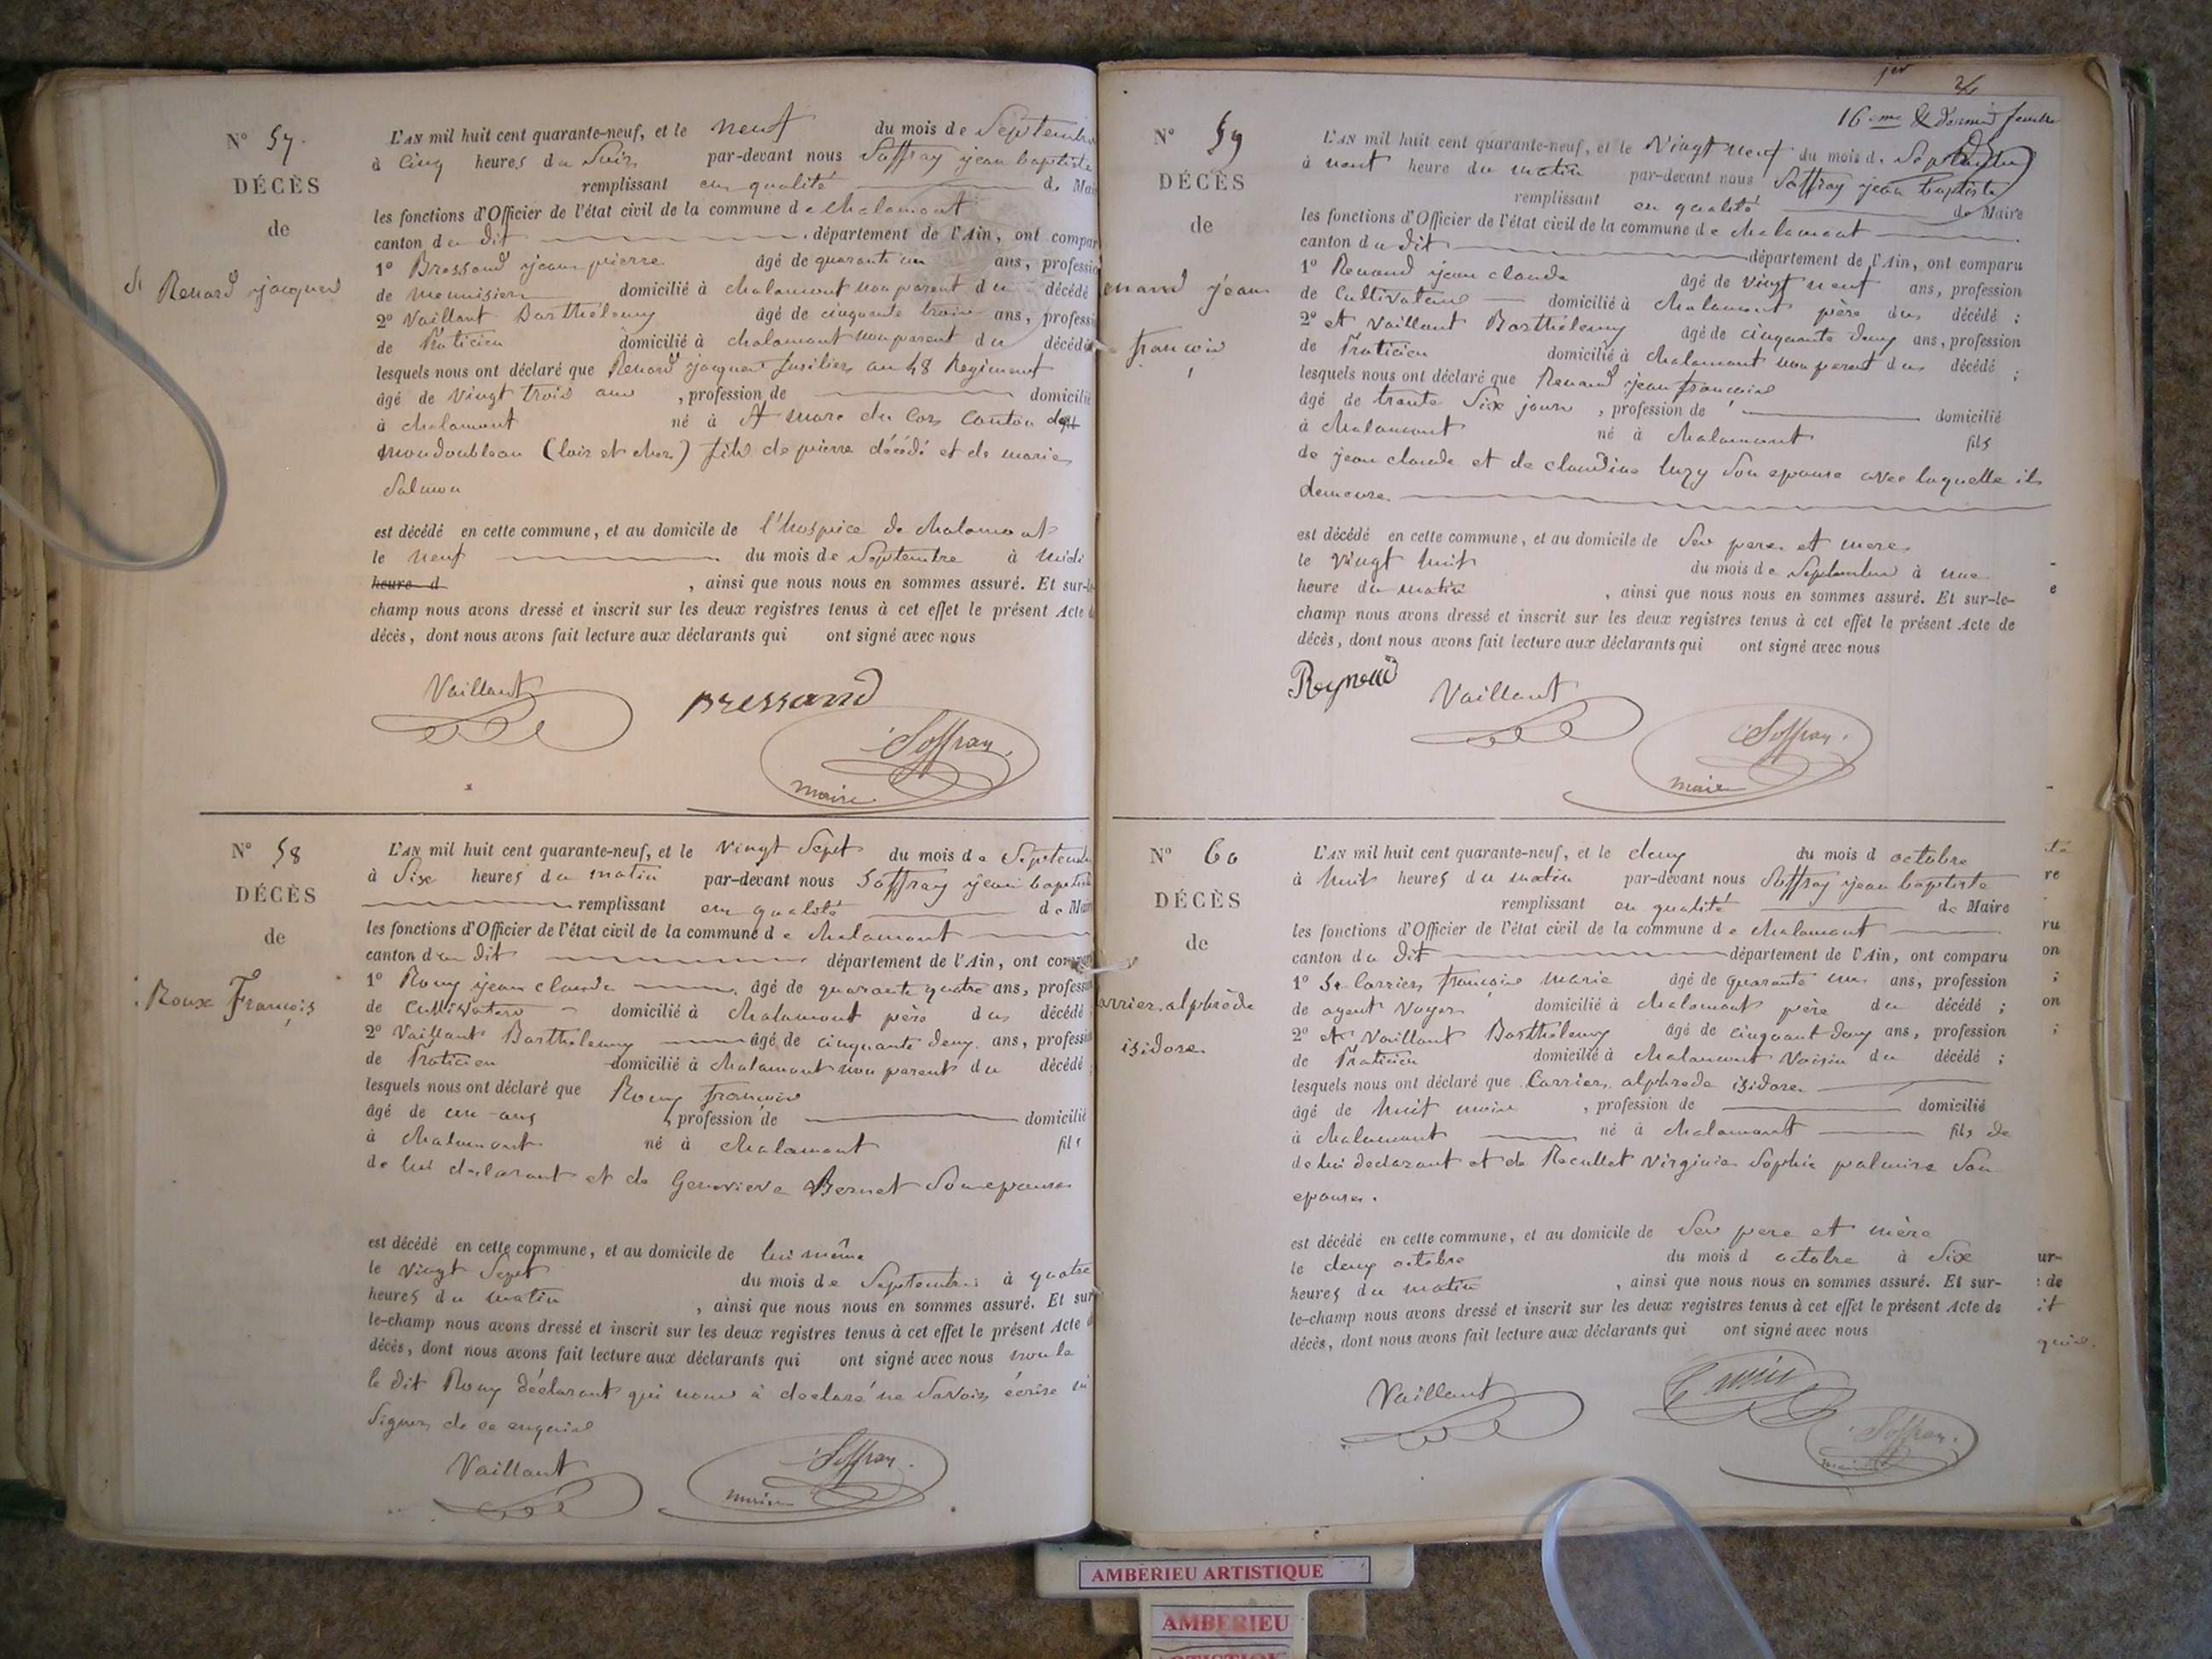 N° 57.
DÉCÈS
de
Renard jacques
L'AN mil huit cent quarante-neuf, et le neuf du mois de Septembre
à cinq heures du Soir par-devant nous Saffray jean baptiste
remplissant en qualité de Mai
les fonctions d'Officier de l'état civil de la commune de chalamont
canton du dit département de l'Ain, ont compar
1° Bressand jean pierre âgé de quarante un ans, professio
de menuisier domicilié à chalamont non parent du décédé
2° Vaillant Barthélemy âgé de cinquante trois ans, professi
de Praticien domicilié à chalamont non parent du décédé
lesquels nous ont déclaré que Renard jacques fusilier au 48 Regiment
âgé de vingt trois ans , profession de domicilié
à chalamont né à St marc du Cor Canton de
mondoubleau (loir et cher) fils de pierre décédé et de marie
Salmon
est décédé en cette commune, et au domicile de l'hospice de chalamont
le neuf du mois de Septembre à midi
heure d , ainsi que nous nous en sommes assuré. Et sur-le-
champ nous avons dressé et inscrit sur les deux registres tenus à cet effet le présent Acte
décès, dont nous avons fait lecture aux déclarants qui ont signé avec nous
Vaillant BRESSAND
Saffray
maire
N° 58
DÉCÈS
de
Roux François
L'AN mil huit cent quarante-neuf, et le vingt Sept du mois de Septemb
à Six heures du matin par-devant nous Saffray jean baptiste
remplissant en qualité de Mair
les fonctions d'Officier de l'état civil de la commune de chalamont
canton du dit département de l'Ain, ont
1° Roux jean claude âgé de quarante quatre ans, profess
de Cultivateur domicilié à chalamont père du décédé
2° Vaillant Barthélemy âgé de cinquante deux ans, profess
de Praticien domicilié à chalamont non parent du décédé
lesquels nous ont déclaré que Roux françois
âgé de un ans , profession de domicilié
à chalamont né à chalamont fils
de lui déclarant et de Genevieve Bernet Son epouse
est décédé en cette commune, et au domicile de lui même
le vingt Sept du mois de Septembre à quatre
heures du matin , ainsi que nous nous en sommes assuré. Et sur
le-champ nous avons dressé et inscrit sur les deux registres tenus à cet effet le présent Acte
décès, dont nous avons fait lecture aux déclarants qui ont signé avec nous non le
le dit Roux déclarant qui nous à declaré ne Savoir écrire ni
Signer de ce enquis
Vaillant Saffray
maire
jer
16eme & dernier feuille
N° 59
DÉCÈS
de
enand jean
françois
L'AN mil huit cent quarante-neuf, et le Vingt neuf du mois de Septembre
à neuf heure du matin par-devant nous Saffray jean baptiste
remplissant en qualité de Maire
les fonctions d'Officier de l'état civil de la commune de chalamont
canton du dit département de l'Ain, ont comparu
1° Renand jean claude âgé de vingt neuf ans, profession
de Cultivateur domicilié à chalamont père du décédé ;
2° et Vaillant Barthélemy âgé de cinquante deux ans, profession
de Praticien domicilié à chalamont non parent du décédé ;
lesquels nous ont déclaré que Renand jean françois
âgé de trente Six jours , profession de domicilié
à chalamont né à chalamont fils
de jean claude et de claudine luzy Son epouse avec laquelle il
demeure
est décédé en cette commune, et au domicile de Ses pere et mere
le vingt huit du mois de Septembre à une
heure du matin , ainsi que nous nous en sommes assuré. Et sur-le-
champ nous avons dressé et inscrit sur les deux registres tenus à cet effet le présent Acte de
décès, dont nous avons fait lecture aux déclarants qui ont signé avec nous
Reynaud Vaillant
Saffray
maire
N° 60
DÉCÈS
de
arrier alphrède
isidore
L'AN mil huit cent quarante-neuf, et le deux du mois d octobre
à huit heures du matin par-devant nous Saffray jean baptiste
remplissant en qualité de Maire
les fonctions d'Officier de l'état civil de la commune de chalamont
canton du dit département de l'Ain, ont comparu
1° Sr Carrier françois marie âgé de quarante un ans, profession
de agent Voyer domicilié à chalamont père du décédé ;
2° et Vaillant Barthélemy âgé de cinquant deux ans, profession
de Praticien domicilié à chalamont Voisin du décédé ;
lesquels nous ont déclaré que Carrier alphrede isidore
âgé de huit mois , profession de domicilié
à chalamont né à chalamont fils de
de lui declarant et de Recullet virginie Sophie palmire Son
epouse.
est décédé en cette commune, et au domicile de Ses pere et mère
le deux octobre du mois d octobre à Six
heures du matin , ainsi que nous nous en sommes assuré. Et sur-
le-champ nous avons dressé et inscrit sur les deux registres tenus à cet effet le présent Acte de
décès, dont nous avons fait lecture aux déclarants qui ont signé avec nous
Vaillant Carrier
Saffray
maire
re
ru
on
;
on
;
ur-
de
it
AMBERIEU ARTISTIQUE
AMBERIEU
ARTISTIQUE